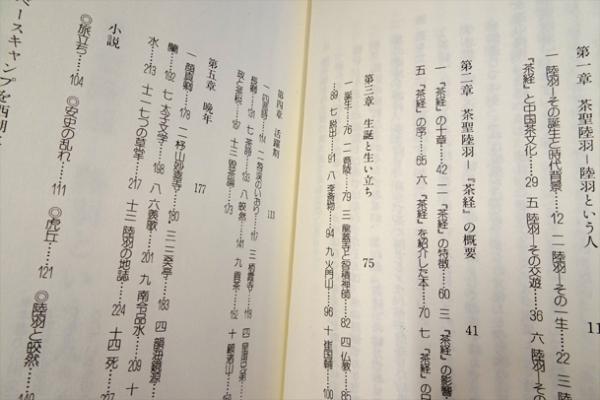 第一章 茶聖陸羽－陸羽という人 11
一 陸羽－その誕生と時代背景……12 二 陸羽－その一生……22 三
『茶経』と中国茶文化……29 五 陸羽－その交遊……36 六 陸羽－その
第二章 茶聖陸羽－『茶経』の概要 41
一 『茶経』の十章……42 二 『茶経』の特徴……60 三 『茶経』の影響
五 『茶経』の序……65 六 『茶経』を紹介した本……70 七 『茶経』の
第三章 生誕と生い立ち 75
一 誕生……76 二 竟陵……79 三 龍蓋寺と智積禅師……82 四 仏教……85
89 七 脱出……91 八 李斎物……94 九 火門山……96 十 崔国輔……100
第四章 活躍期 111
第五章 晩年 177
一 顔真卿……178 二 杼山妙喜寺……180 三 三癸亭……183 四 韻海鏡源
蘭……192 七 太子文学……198 八 六羨歌……201 九 南令品水……209 十
水……213 十一 七つの草堂……217 十三 陸羽の地誌……224 十四 死
小説
◎旅立ち……104 ◎安史の乱れ……111 ◎虎丘……121 ◎陸羽と皎然
ベースキャンプを西湖